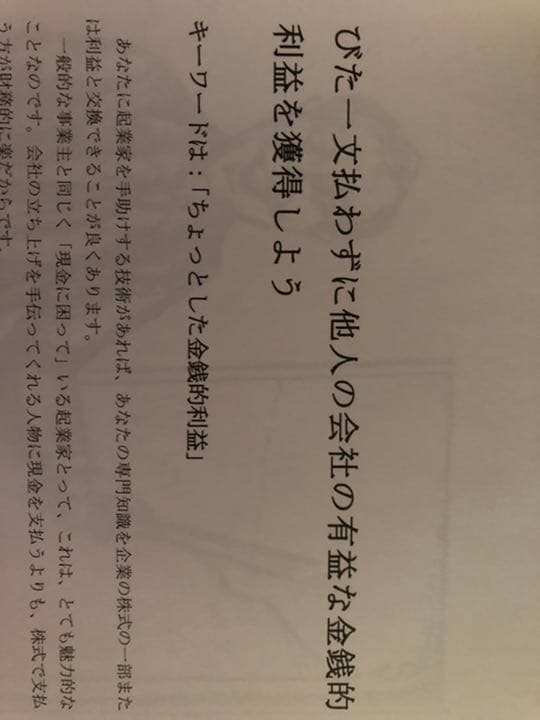 びた一文払わずに他人の会社の有益な金銭的
利益を獲得しよう
キーワードは：「ちょっとした金銭的利益」
あなたに起業家を手助けする技術があれば、あなたの専門知識を企業の株式の一部また
は利益と交換できることが良くあります。
一般的な事業主と同じく「現金に困って」いる起業家とって、これは、とても魅力的な
ことなのです。会社の立ち上げを手伝ってくれる人物に現金を支払うよりも、株式で支払
う方が財務的に楽だからです。